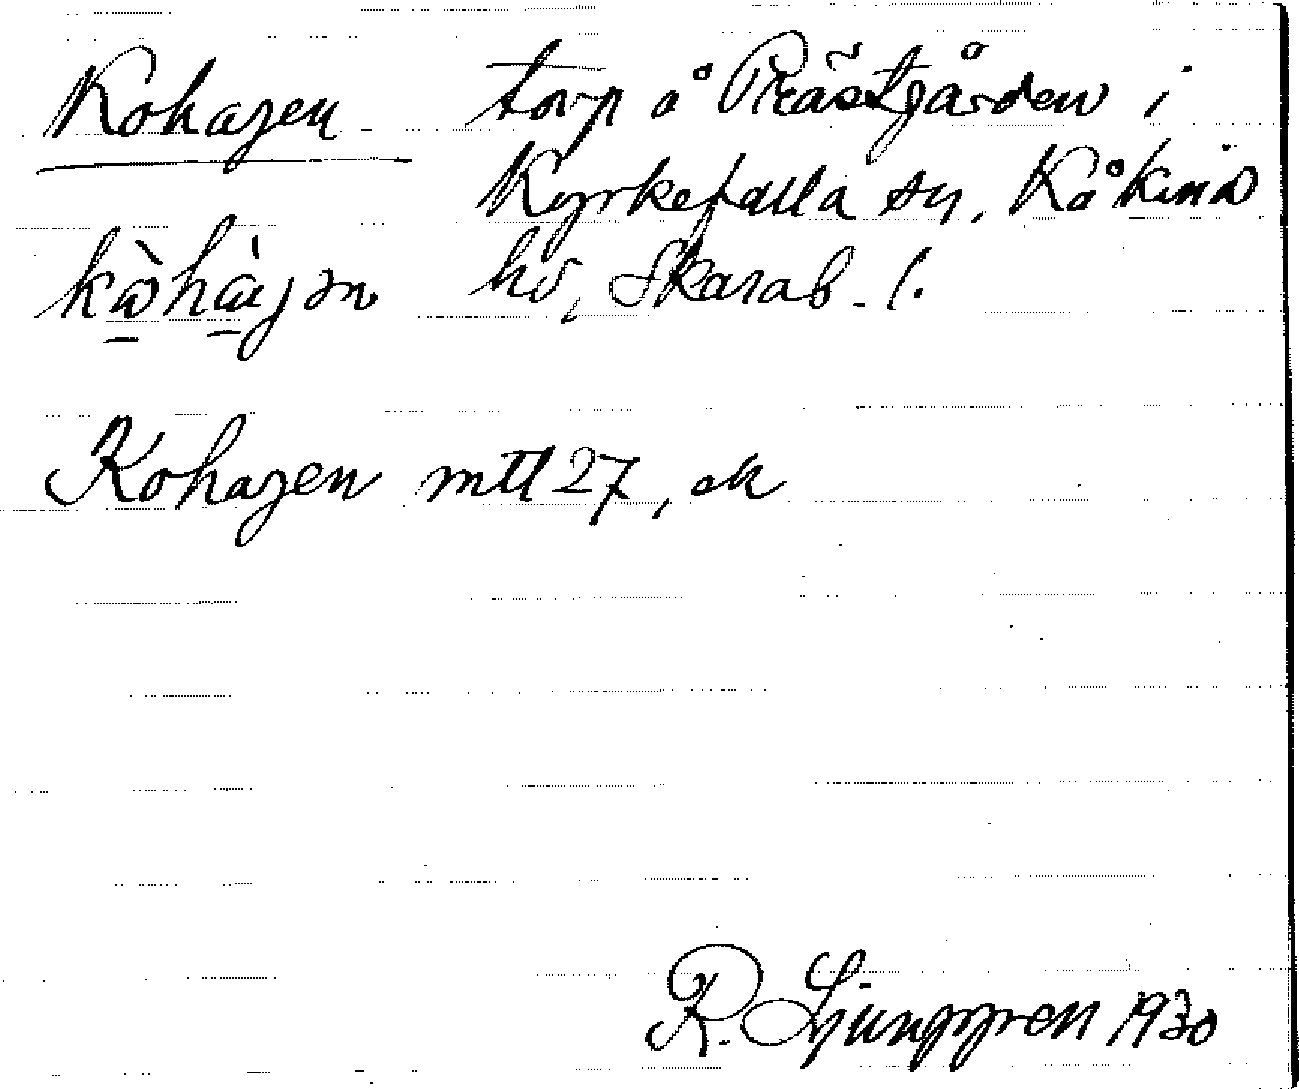 Kohagen torp å Prästgården i
Kyrkefalla sn, Kåkinds
hd, Skarab. l.
kòhàgən
Kohagen mtl 27, ek
R. Ljunggren 1930